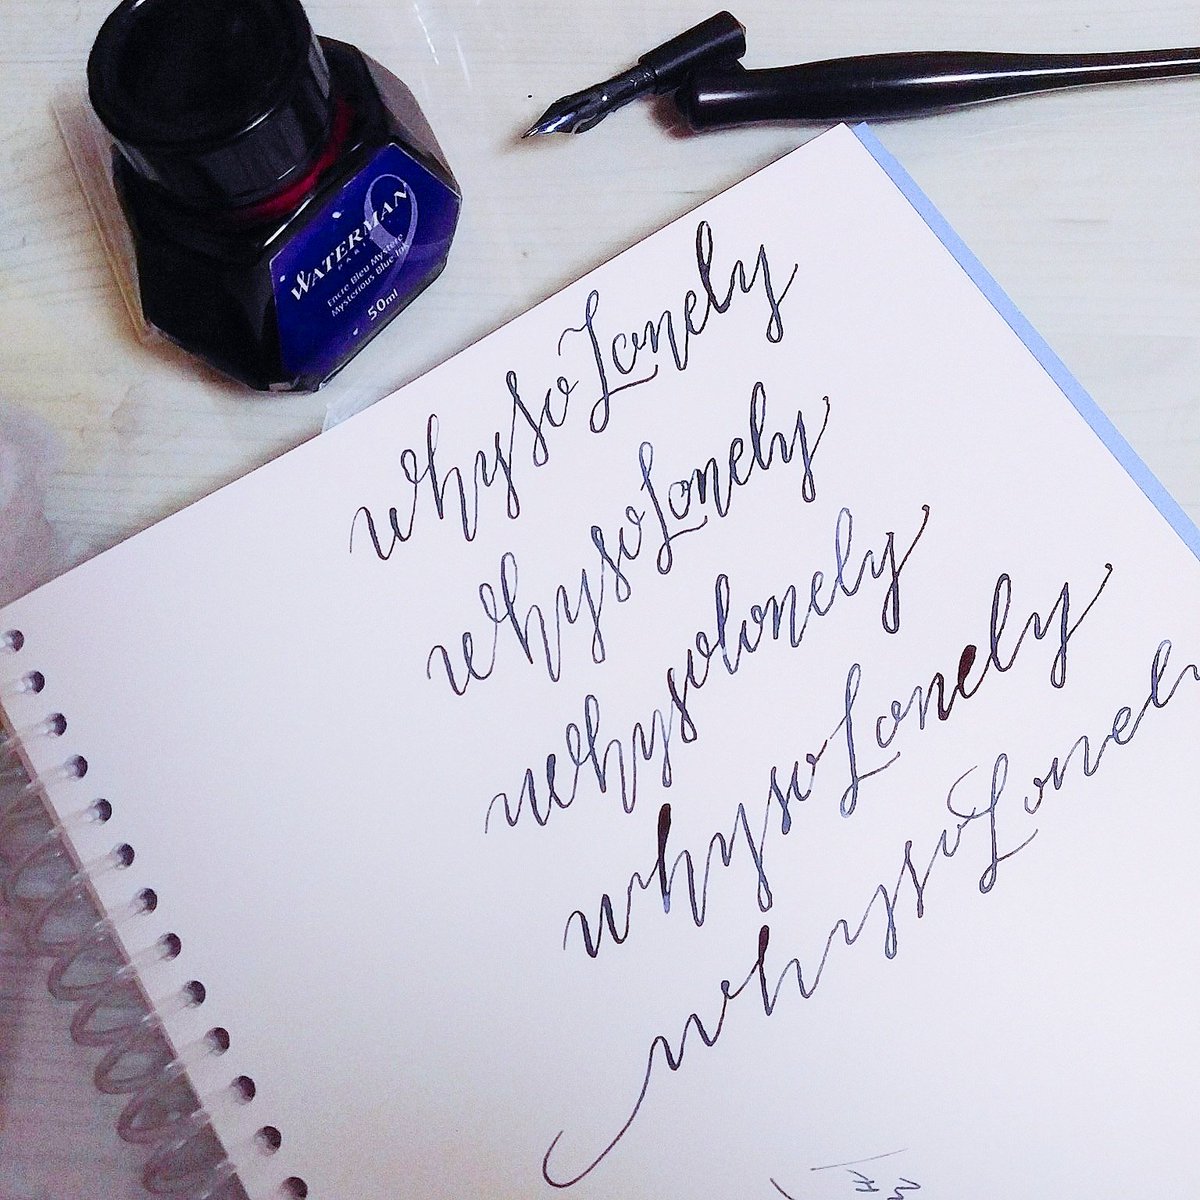 WATERMAN
PARIS
Encre Bleu Mystere
Mysterious Blue Ink
50ml
whysoLonely
whysoLonely
whysolonely
whysoLonely
whysoLonely